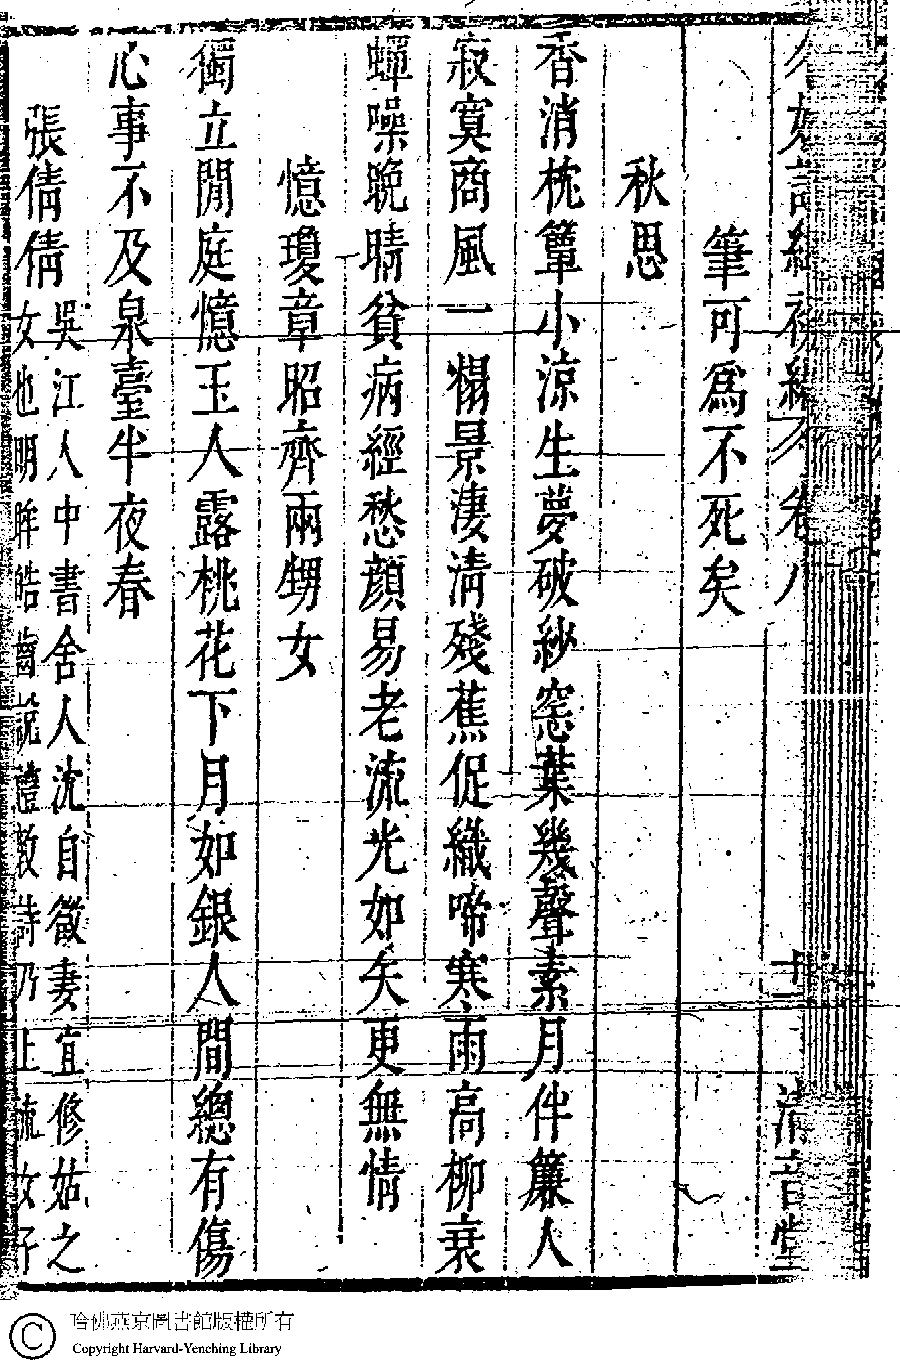 筆可爲不死矣
秋思
香消枕簟小涼生夢破紗窓葉幾聲素月伴簾人
寂寞商風一榻景淒淸殘蕉促織啼寒雨高柳衰
蟬噪晚晴貧病經愁顔易老流光如矢更無情
憶瓊章昭齊兩甥女
獨立閒庭憶玉人露桃花下月如銀人間總有傷
心事不及泉臺半夜春
張倩倩
吳江人中書舍人沈自徵妻宜修姑之
女也明眸皓齒説禮敦詩乃上流女子
哈佛燕京圖書館版權所有
Copyright Harvard-Yenching Library